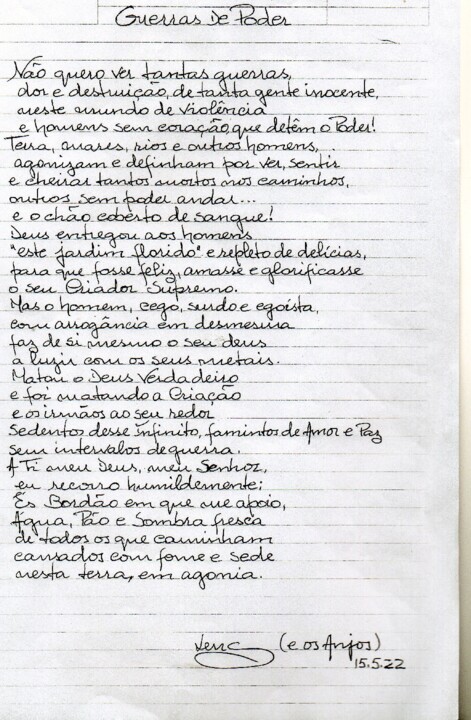 Guerras de Poder
Não quero ver tantas guerras,
dor e destruição, de tanta gente inocente,
neste mundo de violência
e homens sem coração, que detêm o Poder!
Terra, mares, rios e outros homens,
agonizam e definham por ver, sentir
e cheirar tantos mortos nos caminhos,
outros sem poder andar...
e o chão coberto de sangue!
Deus entregou aos homens
"este jardim florido" e repleto de delícias,
para que fosse feliz, amasse e glorificasse
o seu Criador Supremo.
Mas o homem, cego, surdo e egoísta,
com arrogância em desmesura
faz de si mesmo o seu deus
a luzir com os seus metais.
Matou o Deus Verdadeiro
e foi matando a Criação
e os irmãos ao seu redor
Sedentos desse Infinito, famintos de Amor e Paz
sem intervalos de guerra.
A Ti meu Deus, meu Senhor,
eu recorro humildemente;
És Bordão em que me apoio,
Água, Pão e Sombra fresca
de todos os que caminham
cansados com fome e sede
nesta terra, em agonia.
(e os Anjos)
15.5.22